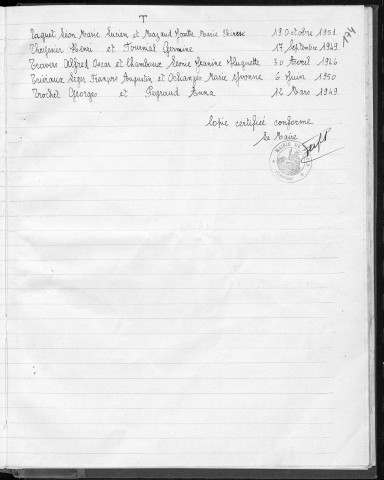 T
174
Taquet Léon Marie Lucien et Mazaud Yvette Marie Thérèse 19 Octobre 1951
Theyssier Henri et Tournial Germine 17 Septembre 1949
Travers Alfred Oscar et Chamboux Léonie Jeanine Huguette 30 Avril 1946
Triviaux Léger François Augustin et Ochangée Marie Yvonne 6 Juin 1950
Trochet Georges et Pograud Anna 12 Mars 1949
Copie certifiée conforme
Le Maire
MAIRIE DE